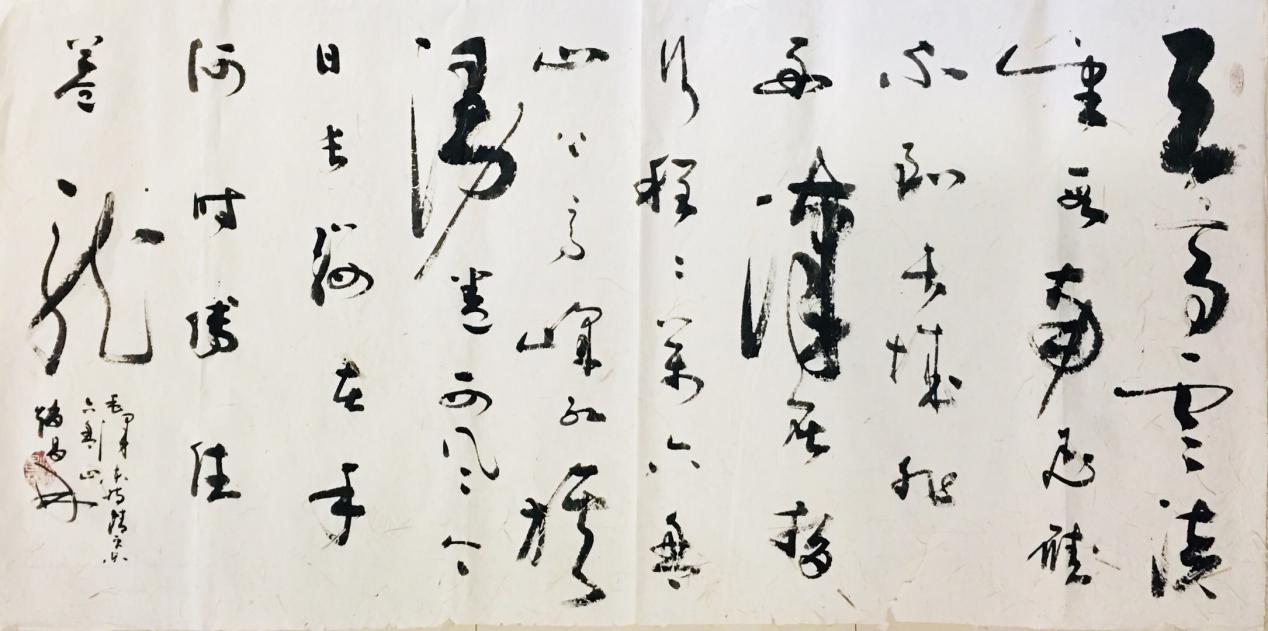 天高云淡
望断南飞雁
不到长城非
好漢屈指
行程二萬六盘
山上高峰红旗
漫卷西风今
日长缨在手
何时缚住
苍龙
六盘山